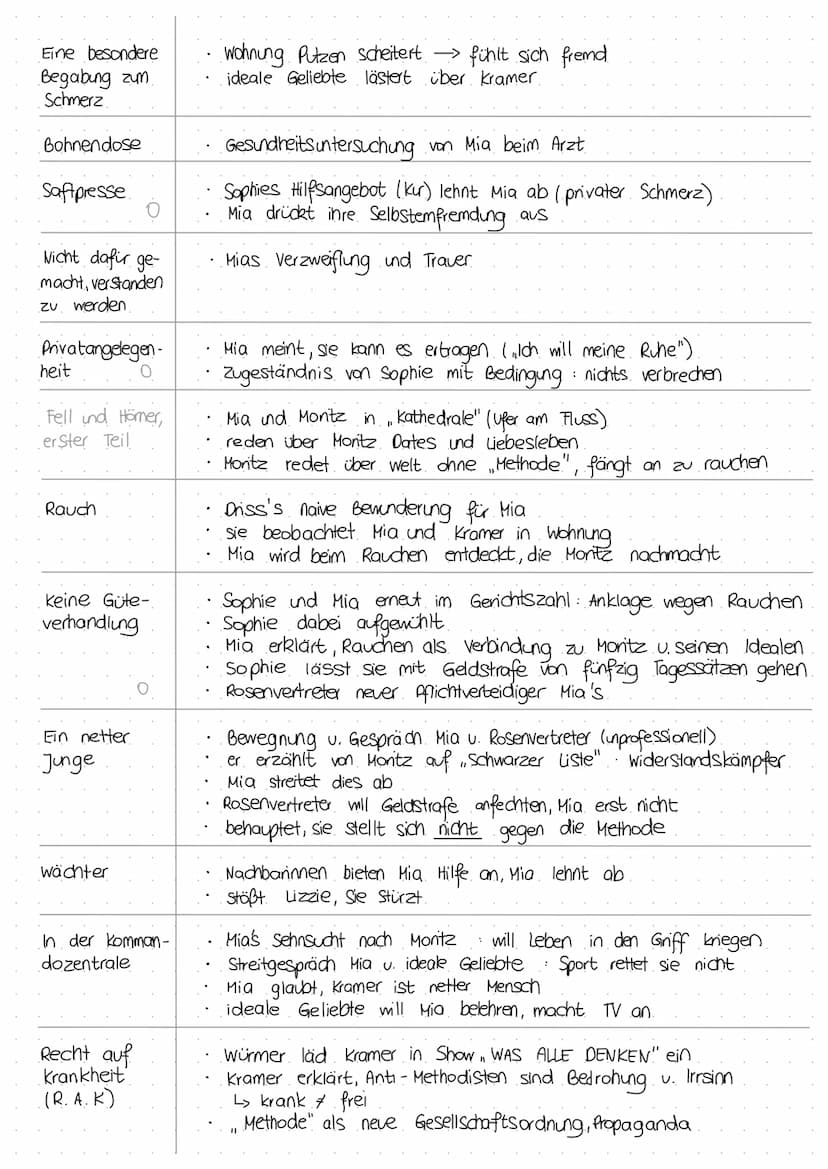 Eine besondere
Begabung zum
Schmerz
· Wohnung Putzen scheitert → fühlt sich fremd
· ideale Geliebte lästert über Kramer
Bohnendose
· Gesundheitsuntersuchung von Mia beim Arzt
Saftpresse
· Sophies Hilfsangebot (Kur) lehnt Mia ab (privater Schmerz)
· Mia drückt ihre Selbstemfremdung aus
Nicht dafür ge-
macht, verstanden
zu werden
· Mias Verzweiflung und Trauer
Privatangelegen-
heit
· Mia meint, sie kann es ertragen („Ich will meine Ruhe")
· Zugeständnis von Sophie mit Bedingung : nichts verbrechen
Fell und Hörner,
erster Teil
· Mia und Moritz in „Kathedrale" (Ufer am Fluss)
· reden über Moritz Dates und Liebesleben
· Moritz redet über Welt ohne „Methode", fängt an zu rauchen
Rauch
· Driss's naive Bewunderung für Mia
· sie beobachtet Mia und Kramer in Wohnung
· Mia wird beim Rauchen entdeckt, die Moritz nachmacht
Keine Güte-
verhandlung
· Sophie und Mia erneut im Gerichtszahl : Anklage wegen Rauchen
· Sophie dabei aufgewühlt
· Mia erklärt, Rauchen als Verbindung zu Moritz u. seinen Idealen
· Sophie lässt sie mit Geldstrafe von fünfzig Tagessätzen gehen
· Rosenvertreter neuer Pflichtverteidiger Mia's
Ein netter
Junge
· Bewegnung u. Gespräch Mia u. Rosenvertreter (unprofessionell)
· er erzählt von Moritz auf „Schwarzer Liste" · Widerstandskämpfer
· Mia streitet dies ab
· Rosenvertreter will Geldstrafe anfechten, Mia erst nicht
· behauptet, sie stellt sich nicht gegen die Methode
Wächter
· Nachbarinnen bieten Mia Hilfe an, Mia lehnt ab
· stößt Lizzie, Sie Stürzt
In der Komman-
dozentrale
· Mia's Sehnsucht nach Moritz : will Leben in den Griff kriegen
· Streitgespräch Mia u. ideale Geliebte : Sport rettet sie nicht
· Mia glaubt, Kramer ist netter Mensch
· ideale Geliebte will Mia belehren, macht TV an
Recht auf
Krankheit
(R. A. K)
· Würmer läd Kramer in Show „WAS ALLE DENKEN" ein
· Kramer erklärt, Anti-Methodisten sind Bedrohung u. Irrsinn
↳ krank ≠ frei
· „Methode" als neue Gesellschaftsordnung, Propaganda